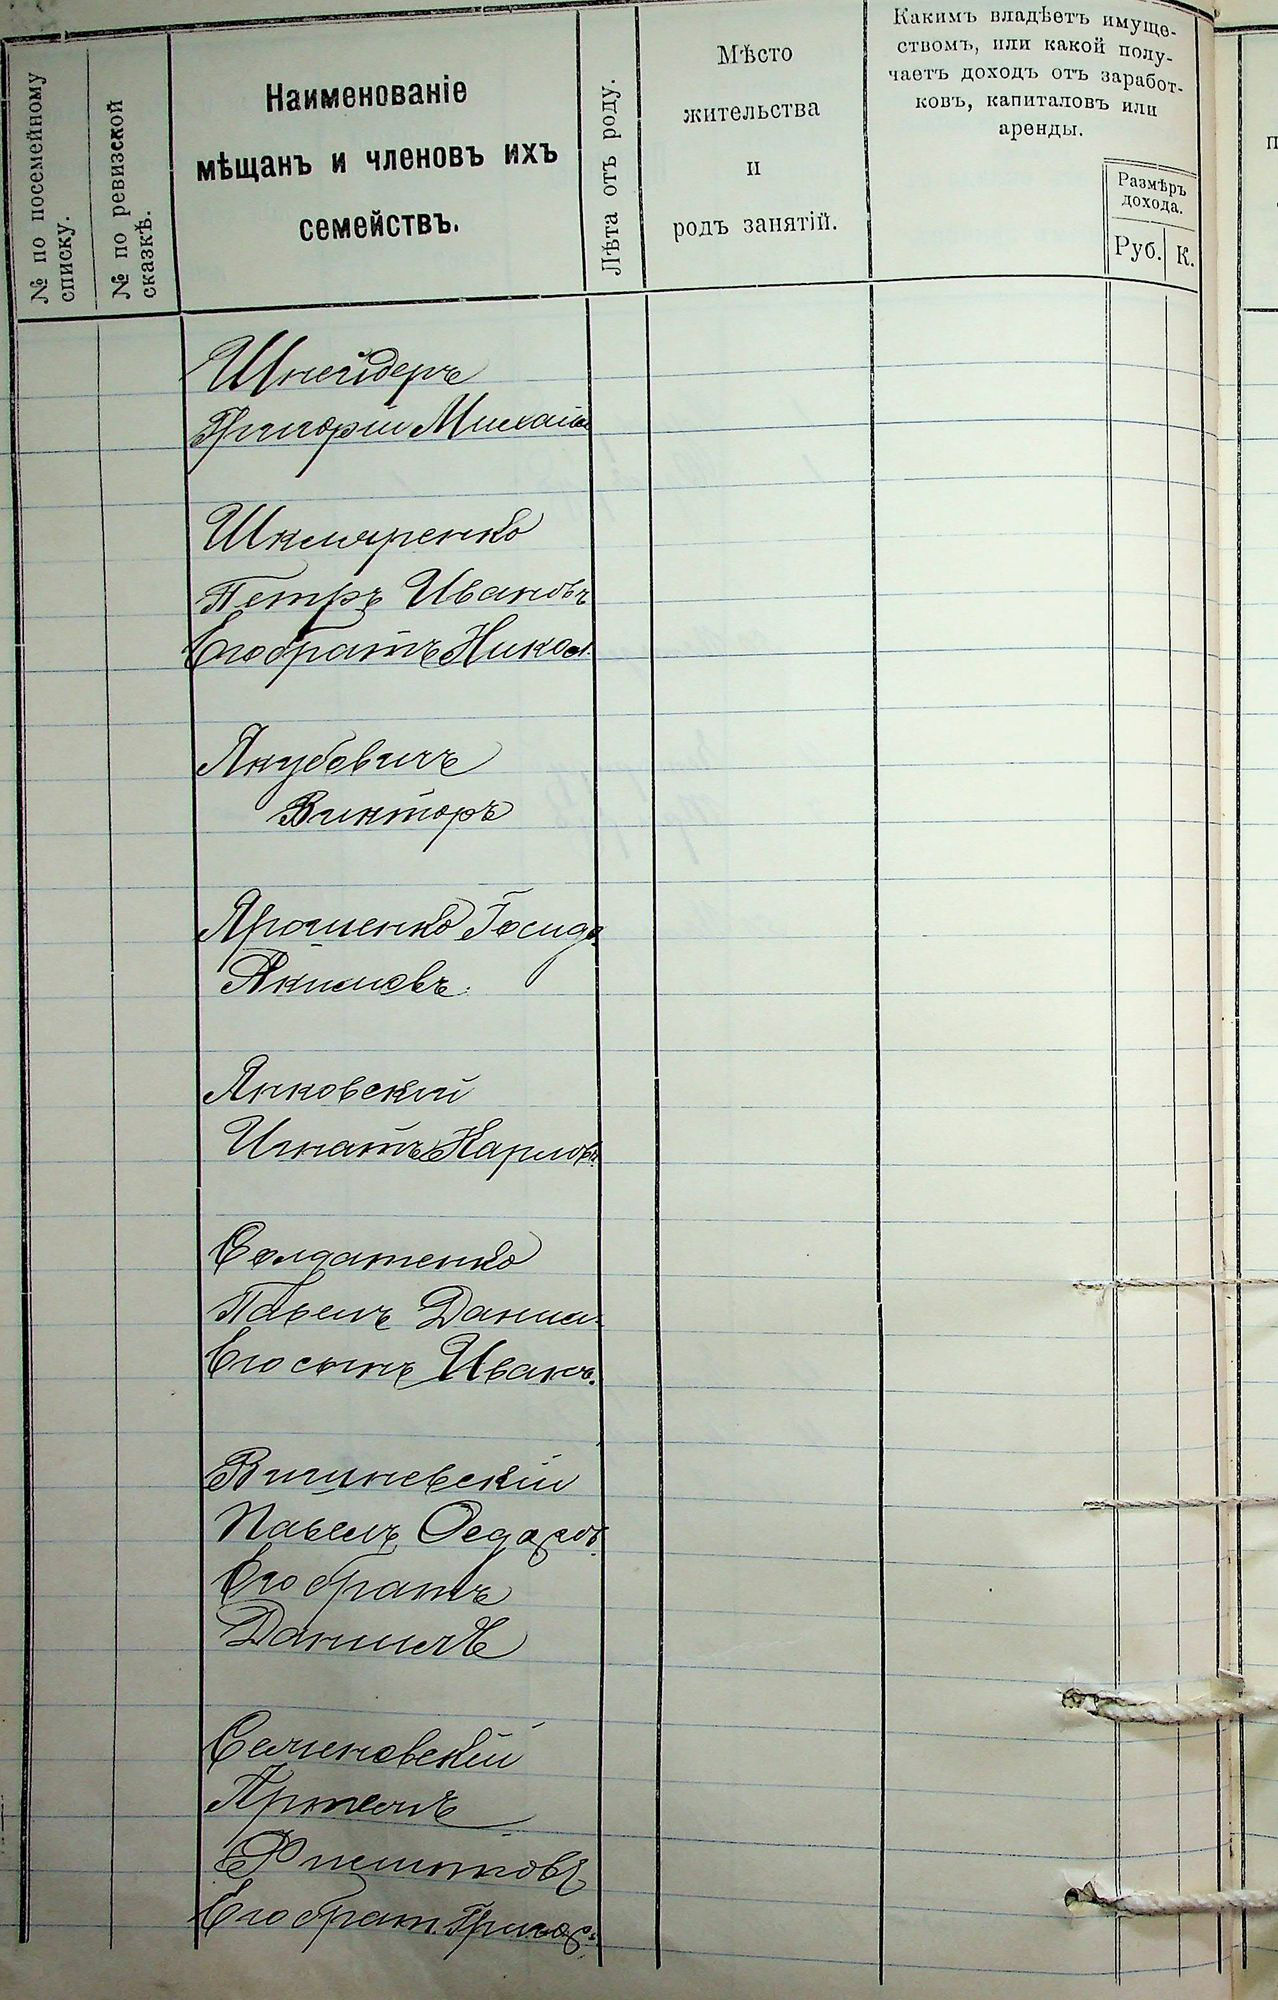 № по посемейному
списку.
№ по ревизской
сказкѣ.
Наименованіе
мѣщанъ и членовъ ихъ
семействъ.
Лѣта отъ роду.
Мѣсто
жительства
и
родъ занятій.
Какимъ владѣетъ имуще-
ствомъ, или какой полу-
чаетъ доходъ отъ заработ-
ковъ, капиталовъ или
аренды.
Размѣръ
дохода.
Руб.
К.
Шнейдеръ
Григорій Михайл
Шкляренко
Петръ Ивановъ
Его братъ Никол.
Якубовичъ
Викторъ
Ярошенко Іосифъ
Якимовъ
Янковскій
Игнатъ Карловъ
Солдатенко
Павелъ Данил.
Его сынъ Иванъ.
Вишневскій
Павелъ Федоров.
Его братъ
Даниилъ
Семеновскій
Артемъ
Филиповъ
Его брат. Григор.